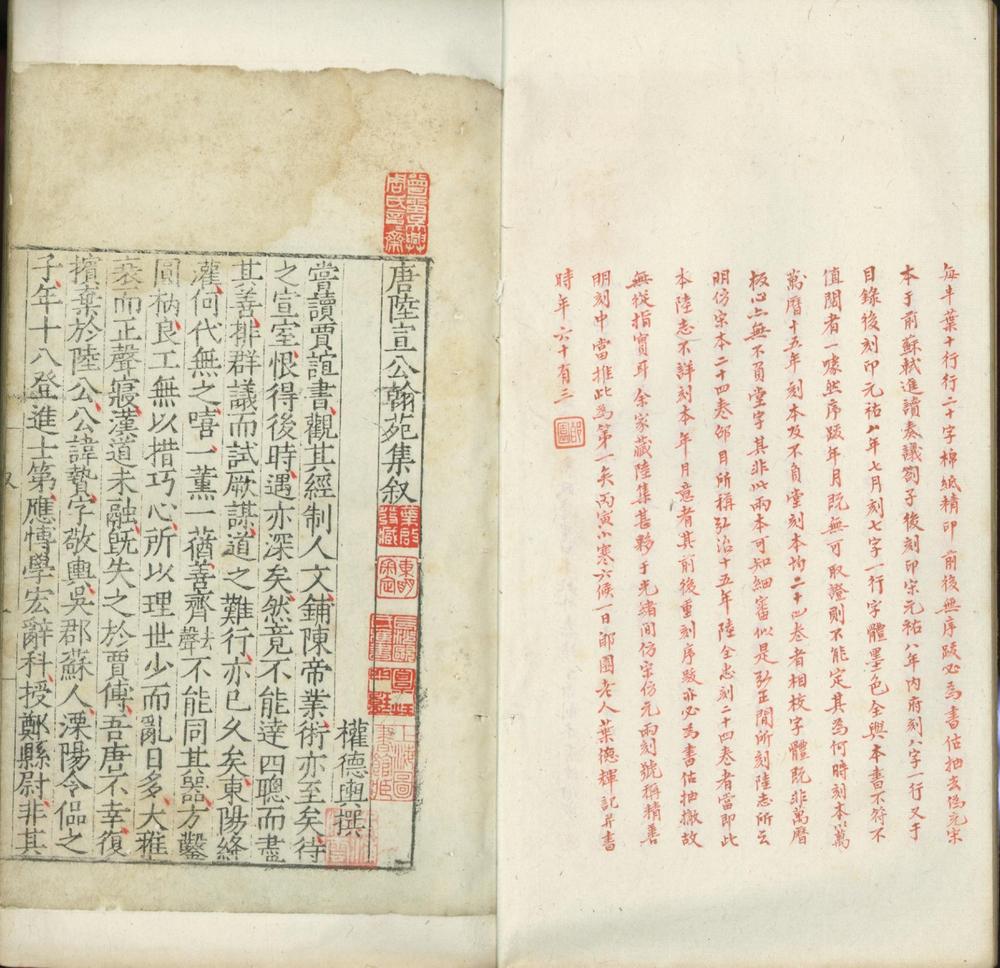 每半葉十行行二十字棉紙精印前後無序跋必為書估抽去偽充宋
本于前蘇軾進讀奏議劄子後刻印宋元祐八年內府刻八字一行又于
目錄後刻印元祐八年七月刻七字一行字體墨色全與本書不符不
值閱者一噱然序跋年月既無可取證則不能定其為何時刻本萬
萬曆十五年刻本及不負堂刻本均二十四卷者相校字體既非萬曆
板心上無不負堂字其非此兩本可知細審似是弘正間所刻陸志所云
明仿宋本二十四卷邵目所稱弘治十五年陸全忠刻二十四卷者當即此
本陸志不詳刻本年月意者其前後重刻序跋亦必為書估抽撤故
無從指實耳余家藏陸集甚夥于光緒間仿宋仿元兩刻號稱精善
明刻中當推此為第一矣丙寅小寒六候一日郋園老人葉德輝記并書
時年六十有三
郋園
唐陸宣公翰苑集叙
權德輿撰
嘗讀賈誼書觀其經制人文鋪陳帝業術亦至矣待
之宣室恨得後時遇亦深矣然竟不能達四聰而盡
其善排群議而試厥謀道之難行亦已久矣東陽絳
灌何代無之嘻一薰一蕕善齊去聲不能同其器方鑿
圓枘良工無以措巧心所以理世少而亂日多大雅
衰而正聲寢漢道未融既失之於賈傅吾唐不幸復
擯棄於陸公公諱贄字敬輿吳郡蘇人溧陽令偘之
子年十八登進士第應博學宏辭科授鄭縣尉非其